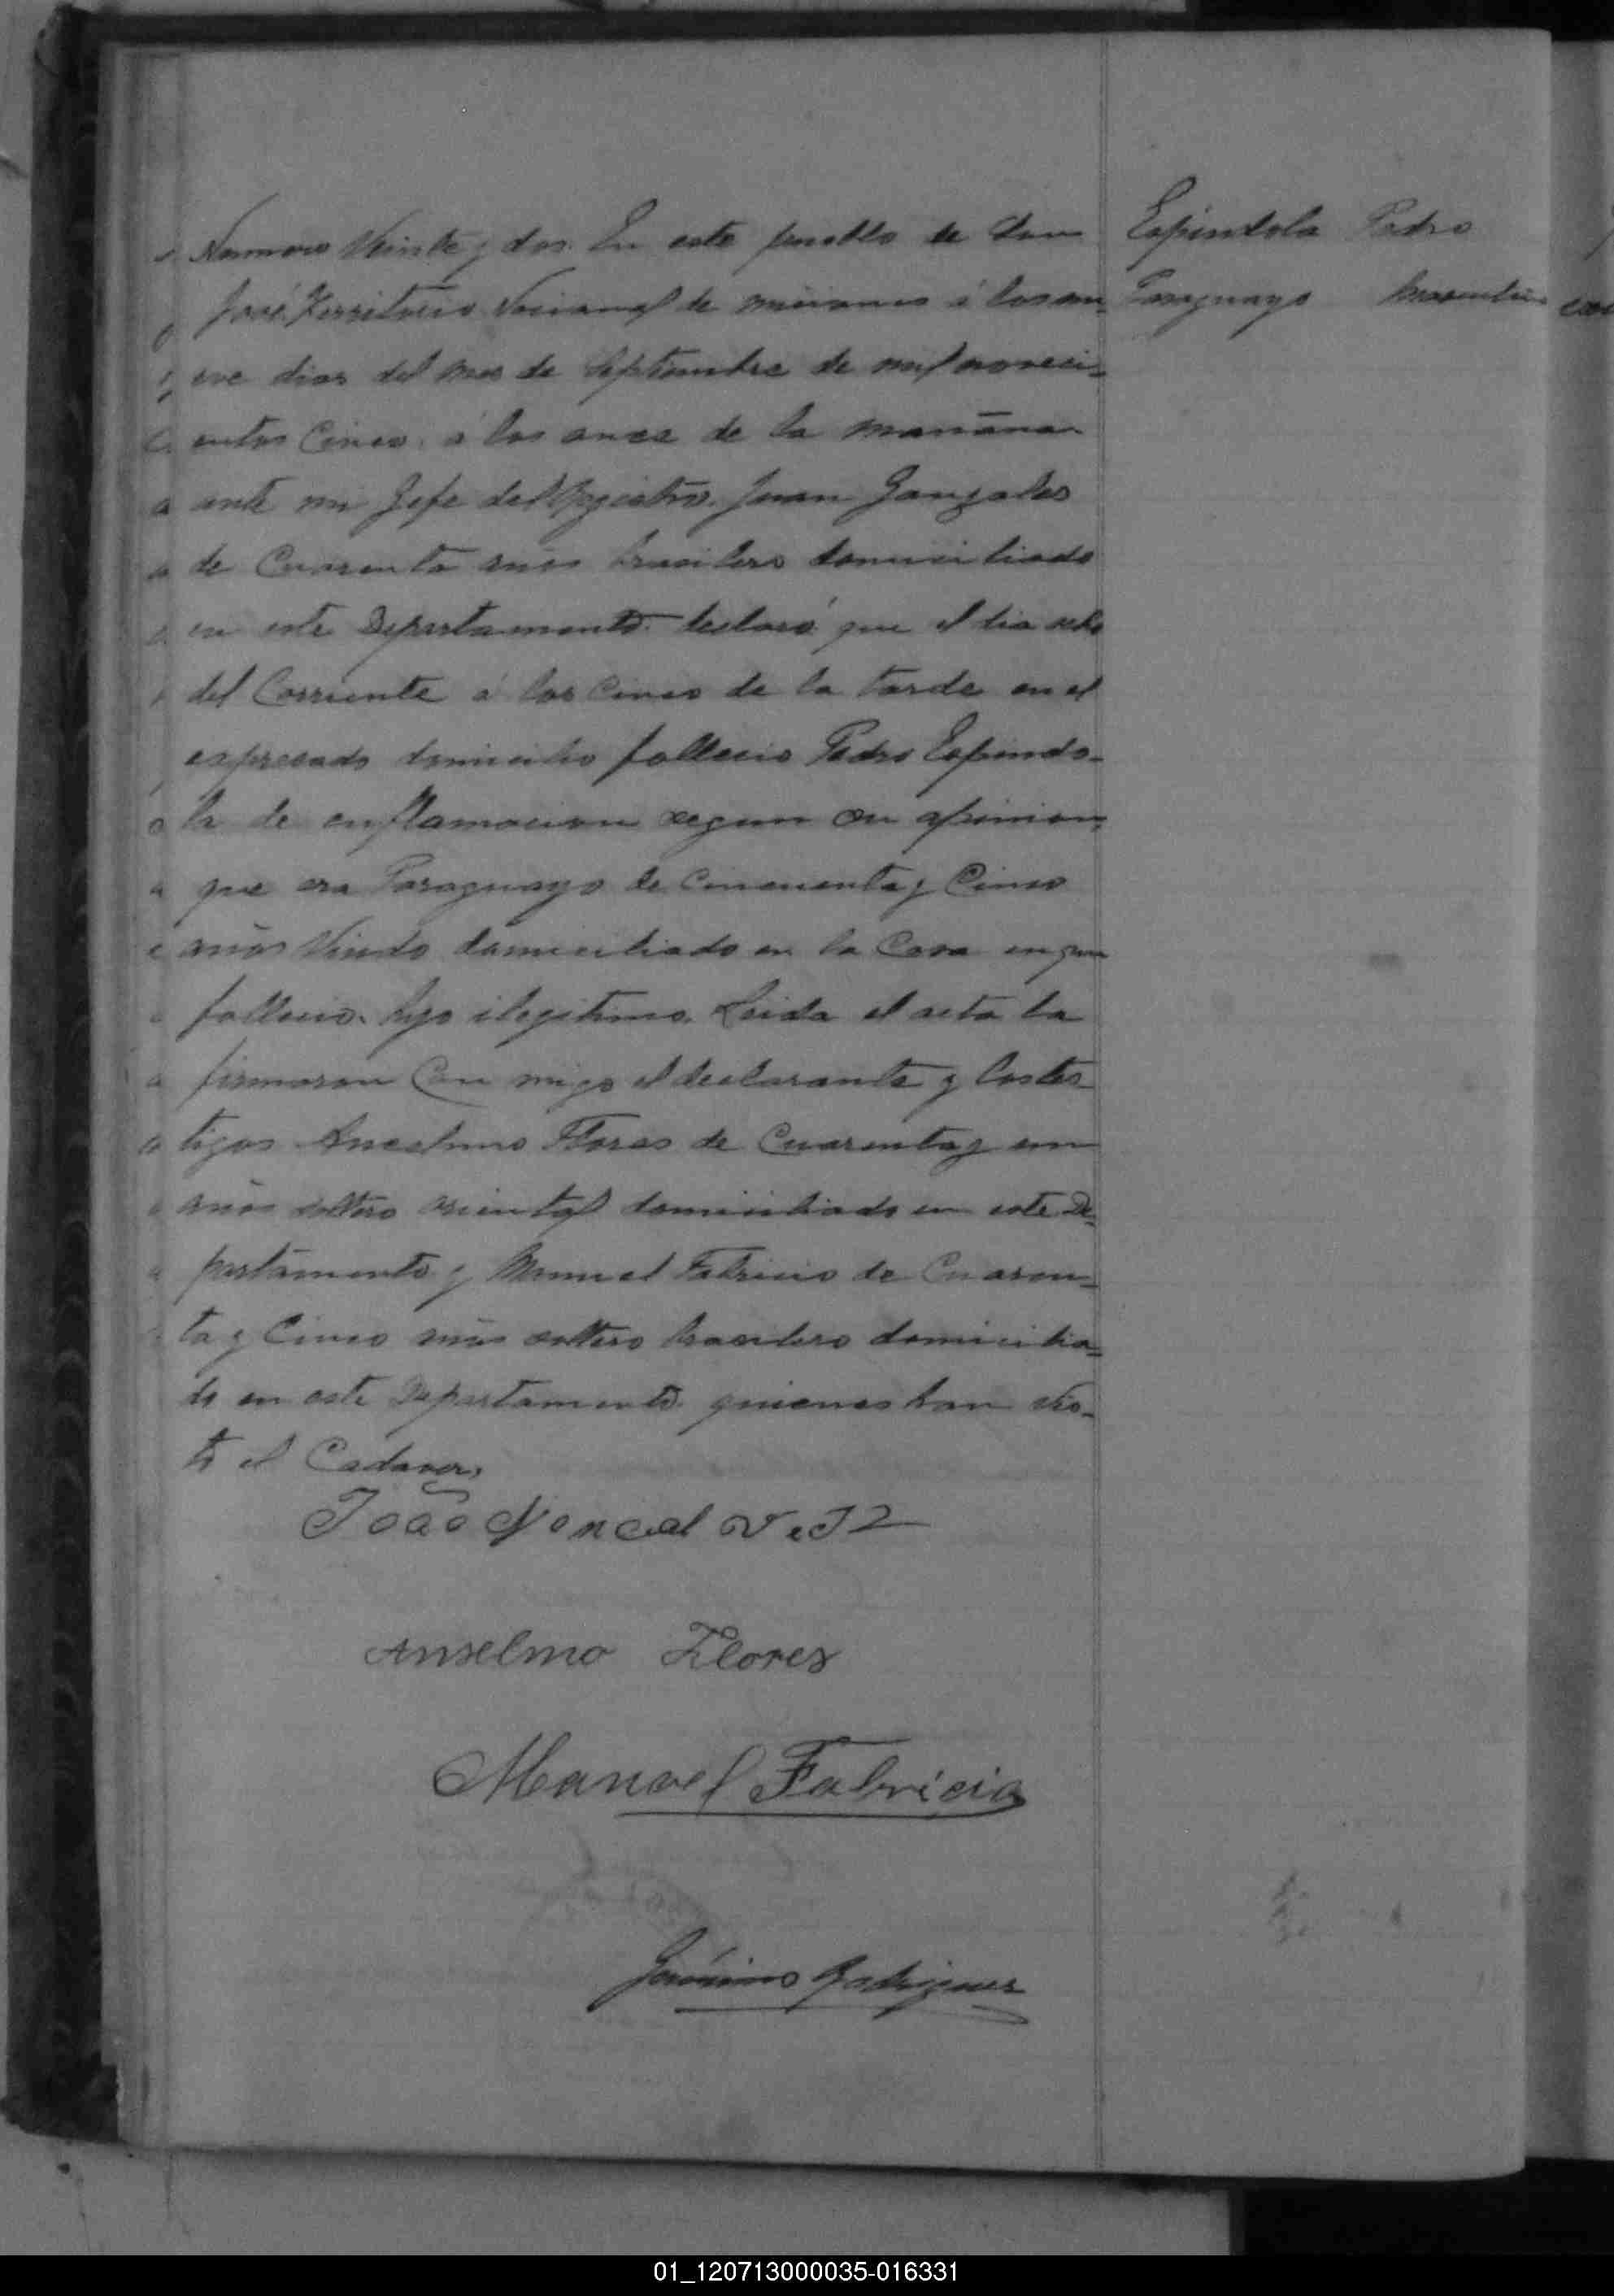 Numero Veinte y dos. En este pueblo de San
José Territorio Nacional de misiones á los nu-
eve dias del mes de Septiembre de mil noveci-
entos Cinco, á las once de la mañana
ante mi Jefe del Registro. Juan Gonzales
de Cuarenta años brasilero domiciliado
en este Departamento declaró que el dia ocho
del Corriente á las Cinco de la tarde en el
expresado domicilio fallecio Pedro Espindo-
la de enflamacion segun su opinion,
que era Paraguayo de Cincuenta y Cinco
años Viudo domiciliado en la Casa en que
fallecio. hijo ilegitimo. Leida el acta la
firmaron Con migo el declarante y los tes-
tigos Anselmo Flores de Cuarenta y un
años soltero oriental domiciliado en este De-
partamento y Manuel Fabricio de Cuaren-
ta y Cinco años soltero brasilero domicilia-
do en este Departamento quienes han vis-
to el Cadaver,
João
Anselmo Flores
Manoel Fabricio
Gerónimo Rodriguez
Espindola Pedro
Paraguayo
01_120713000035-016331